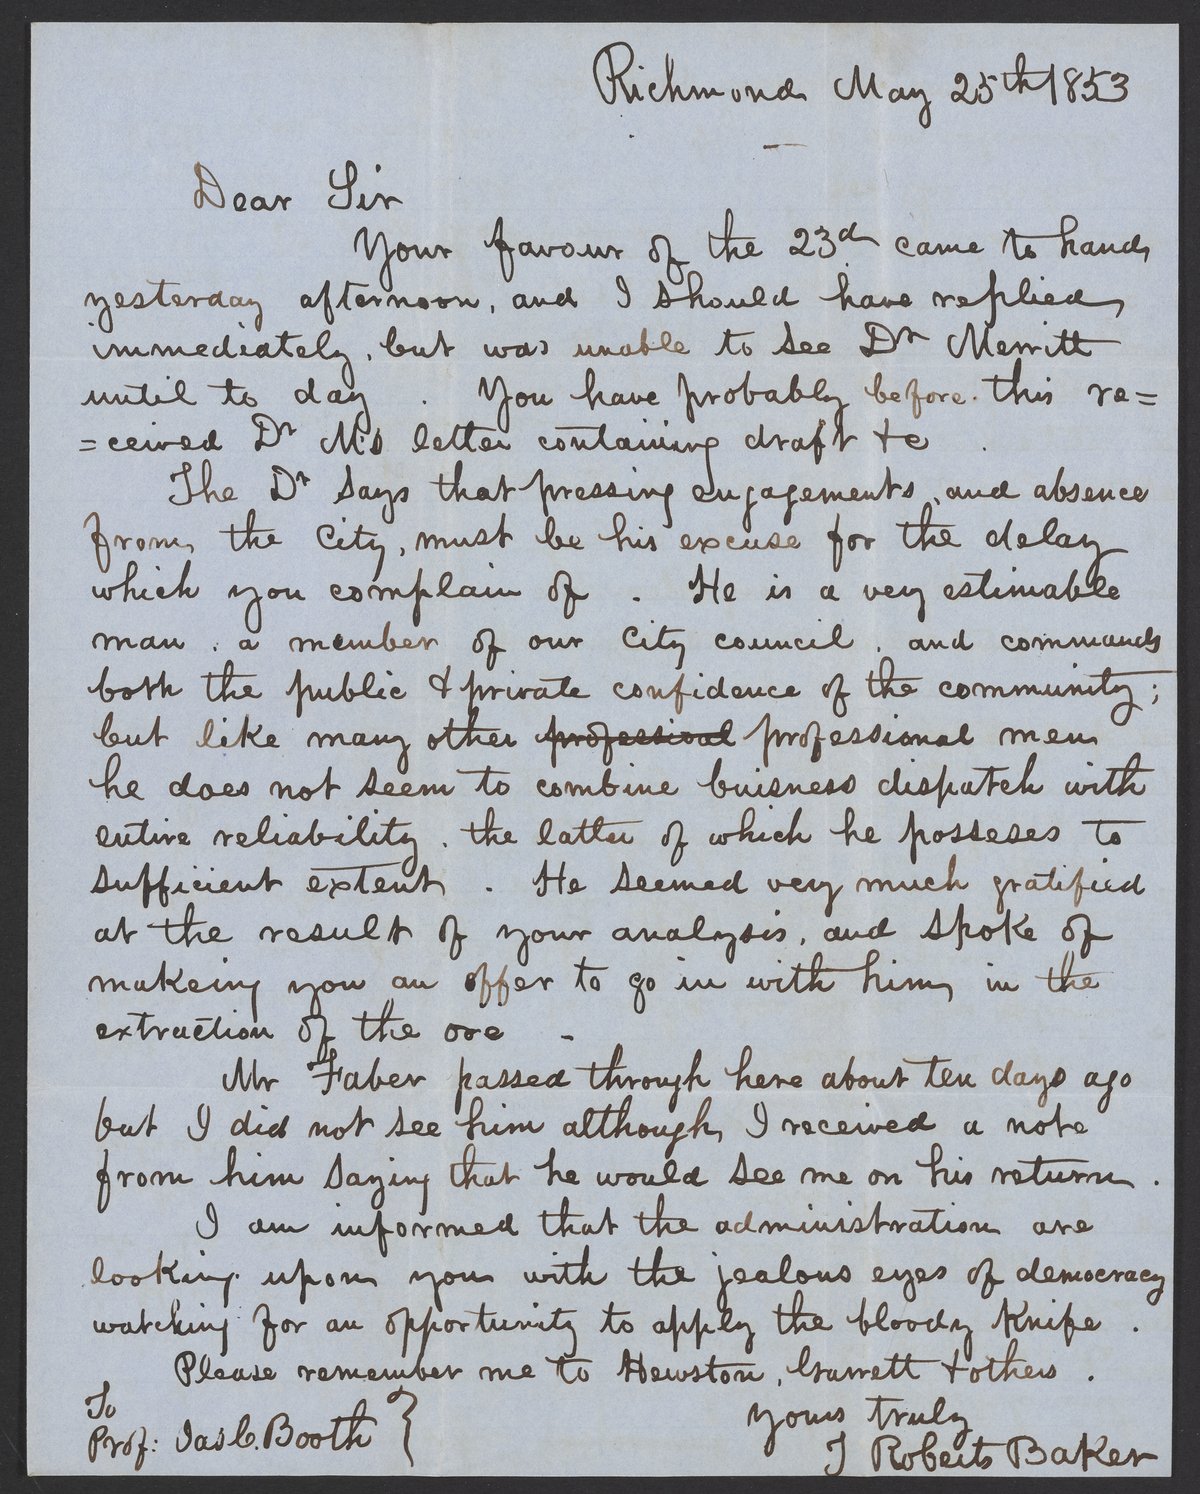 Richmond May 25th 1853
Dear Sir
Your favour of the 23d came to hand
yesterday afternoon, and I should have replied
immediately, but was unable to see Dr Merritt
until to day . You have probably before this re=
=ceived Dr M's letter containing draft &c .
The Dr says that pressing engagements, and absence
from the City, must be his excuse for the delay
which you complain of . He is a very estimable
man, a member of our City council, and commands
both the public & private confidence of the community;
but like many other professional professional men
he does not seem to combine buisness dispatch with
entire reliability, the latter of which he posseses to
sufficient extent . He seemed very much gratified
at the result of your analysis, and spoke of
makeing you an offer to go in with him, in the
extraction of the ore -
Mr Faber passed through here about ten days ago
but I did not see him although I received a note
from him saying that he would see me on his return .
I am informed that the administration are
looking upon you with the jealous eyes of democracy
watching for an opportunity to apply the bloody Knife .
Please remember me to Hewston, Garrett & others .
yours truly
To
Prof: Jas C. Booth }
T Roberts Baker